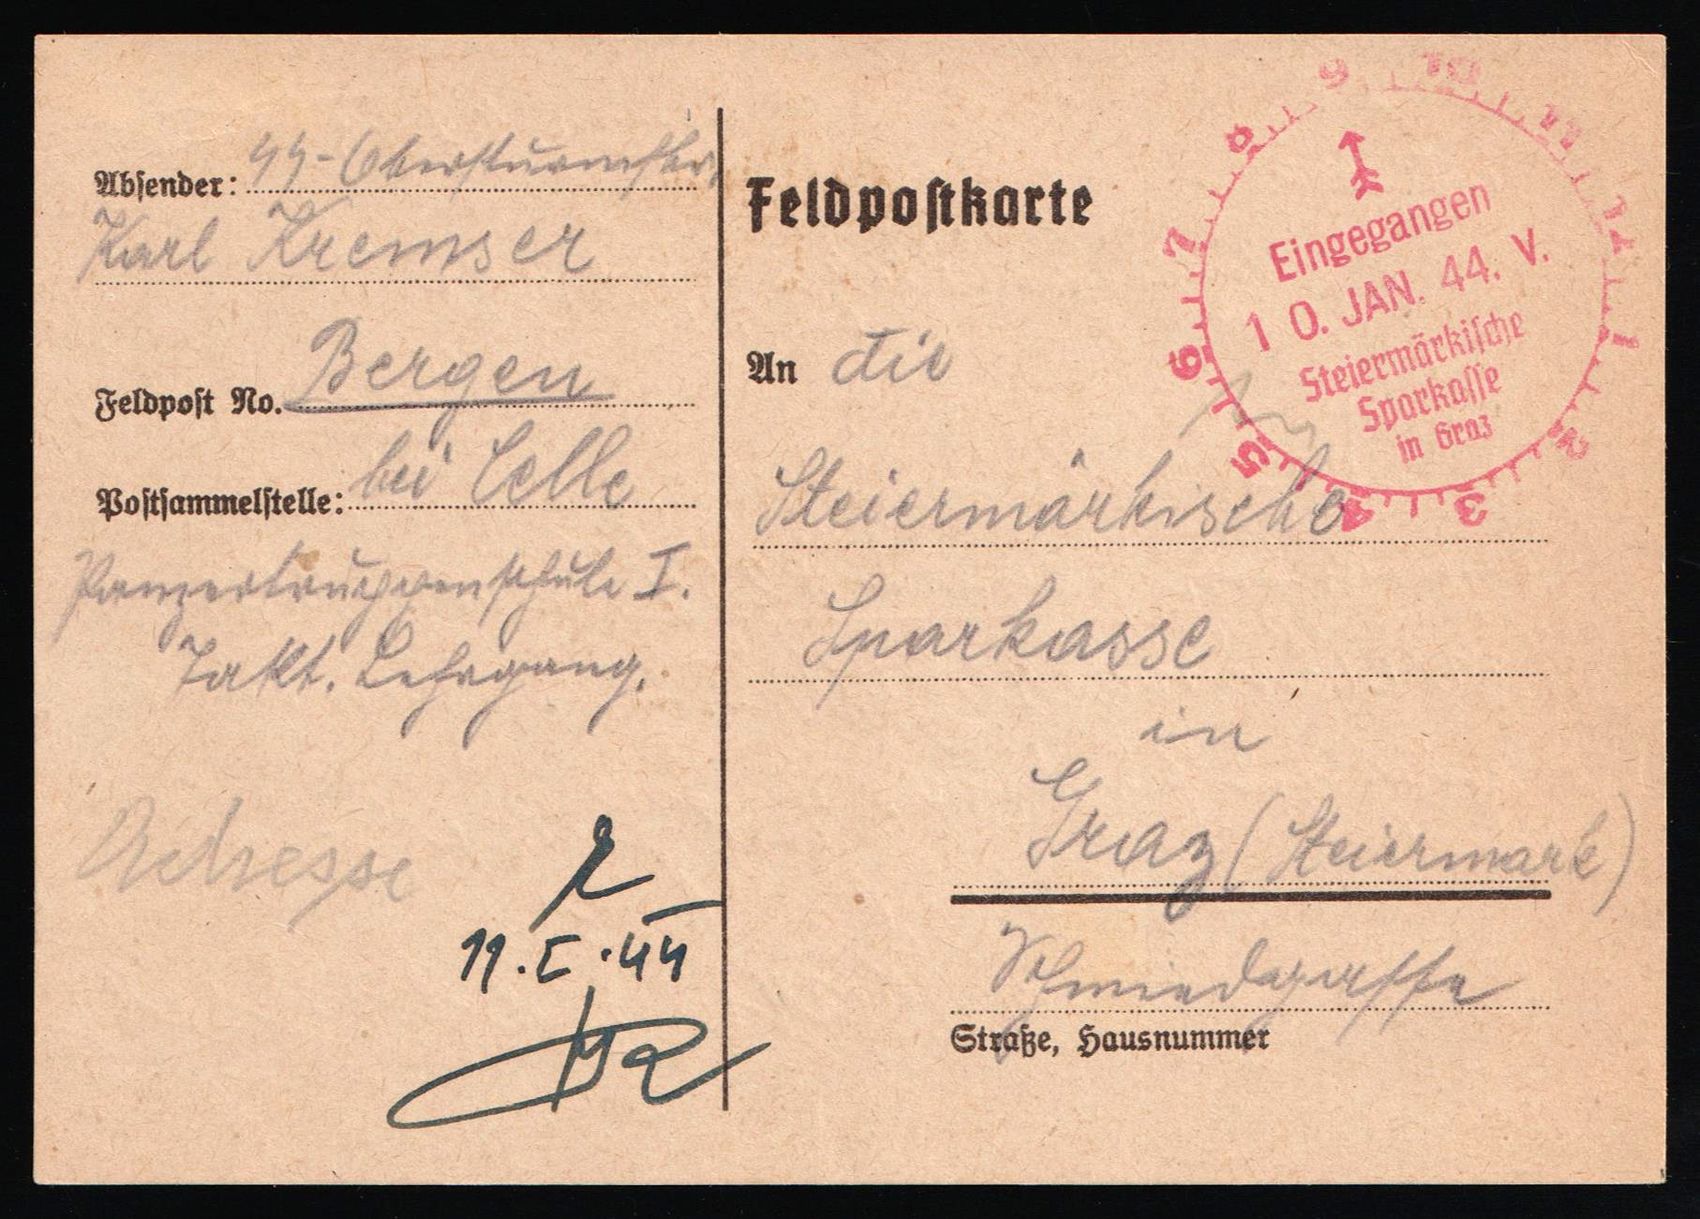 Absender: SS-Obersturmfhr.
Karl Kremser
Feldpost No. Bergen
Postsammelstelle: bei Celle
Panzertruppenschule I.
Takt. Lehrgang.
Adresse
11.I.44
Feldpostkarte
An die
Steiermärkische
Sparkasse
in
Graz (Steiermark)
Schmiedgasse
Straße, Hausnummer
Eingegangen
10. JAN. 44. V.
Steiermärkische
Sparkasse
in Graz
1 2 3 4 5 6 7 8 9 10 11 12